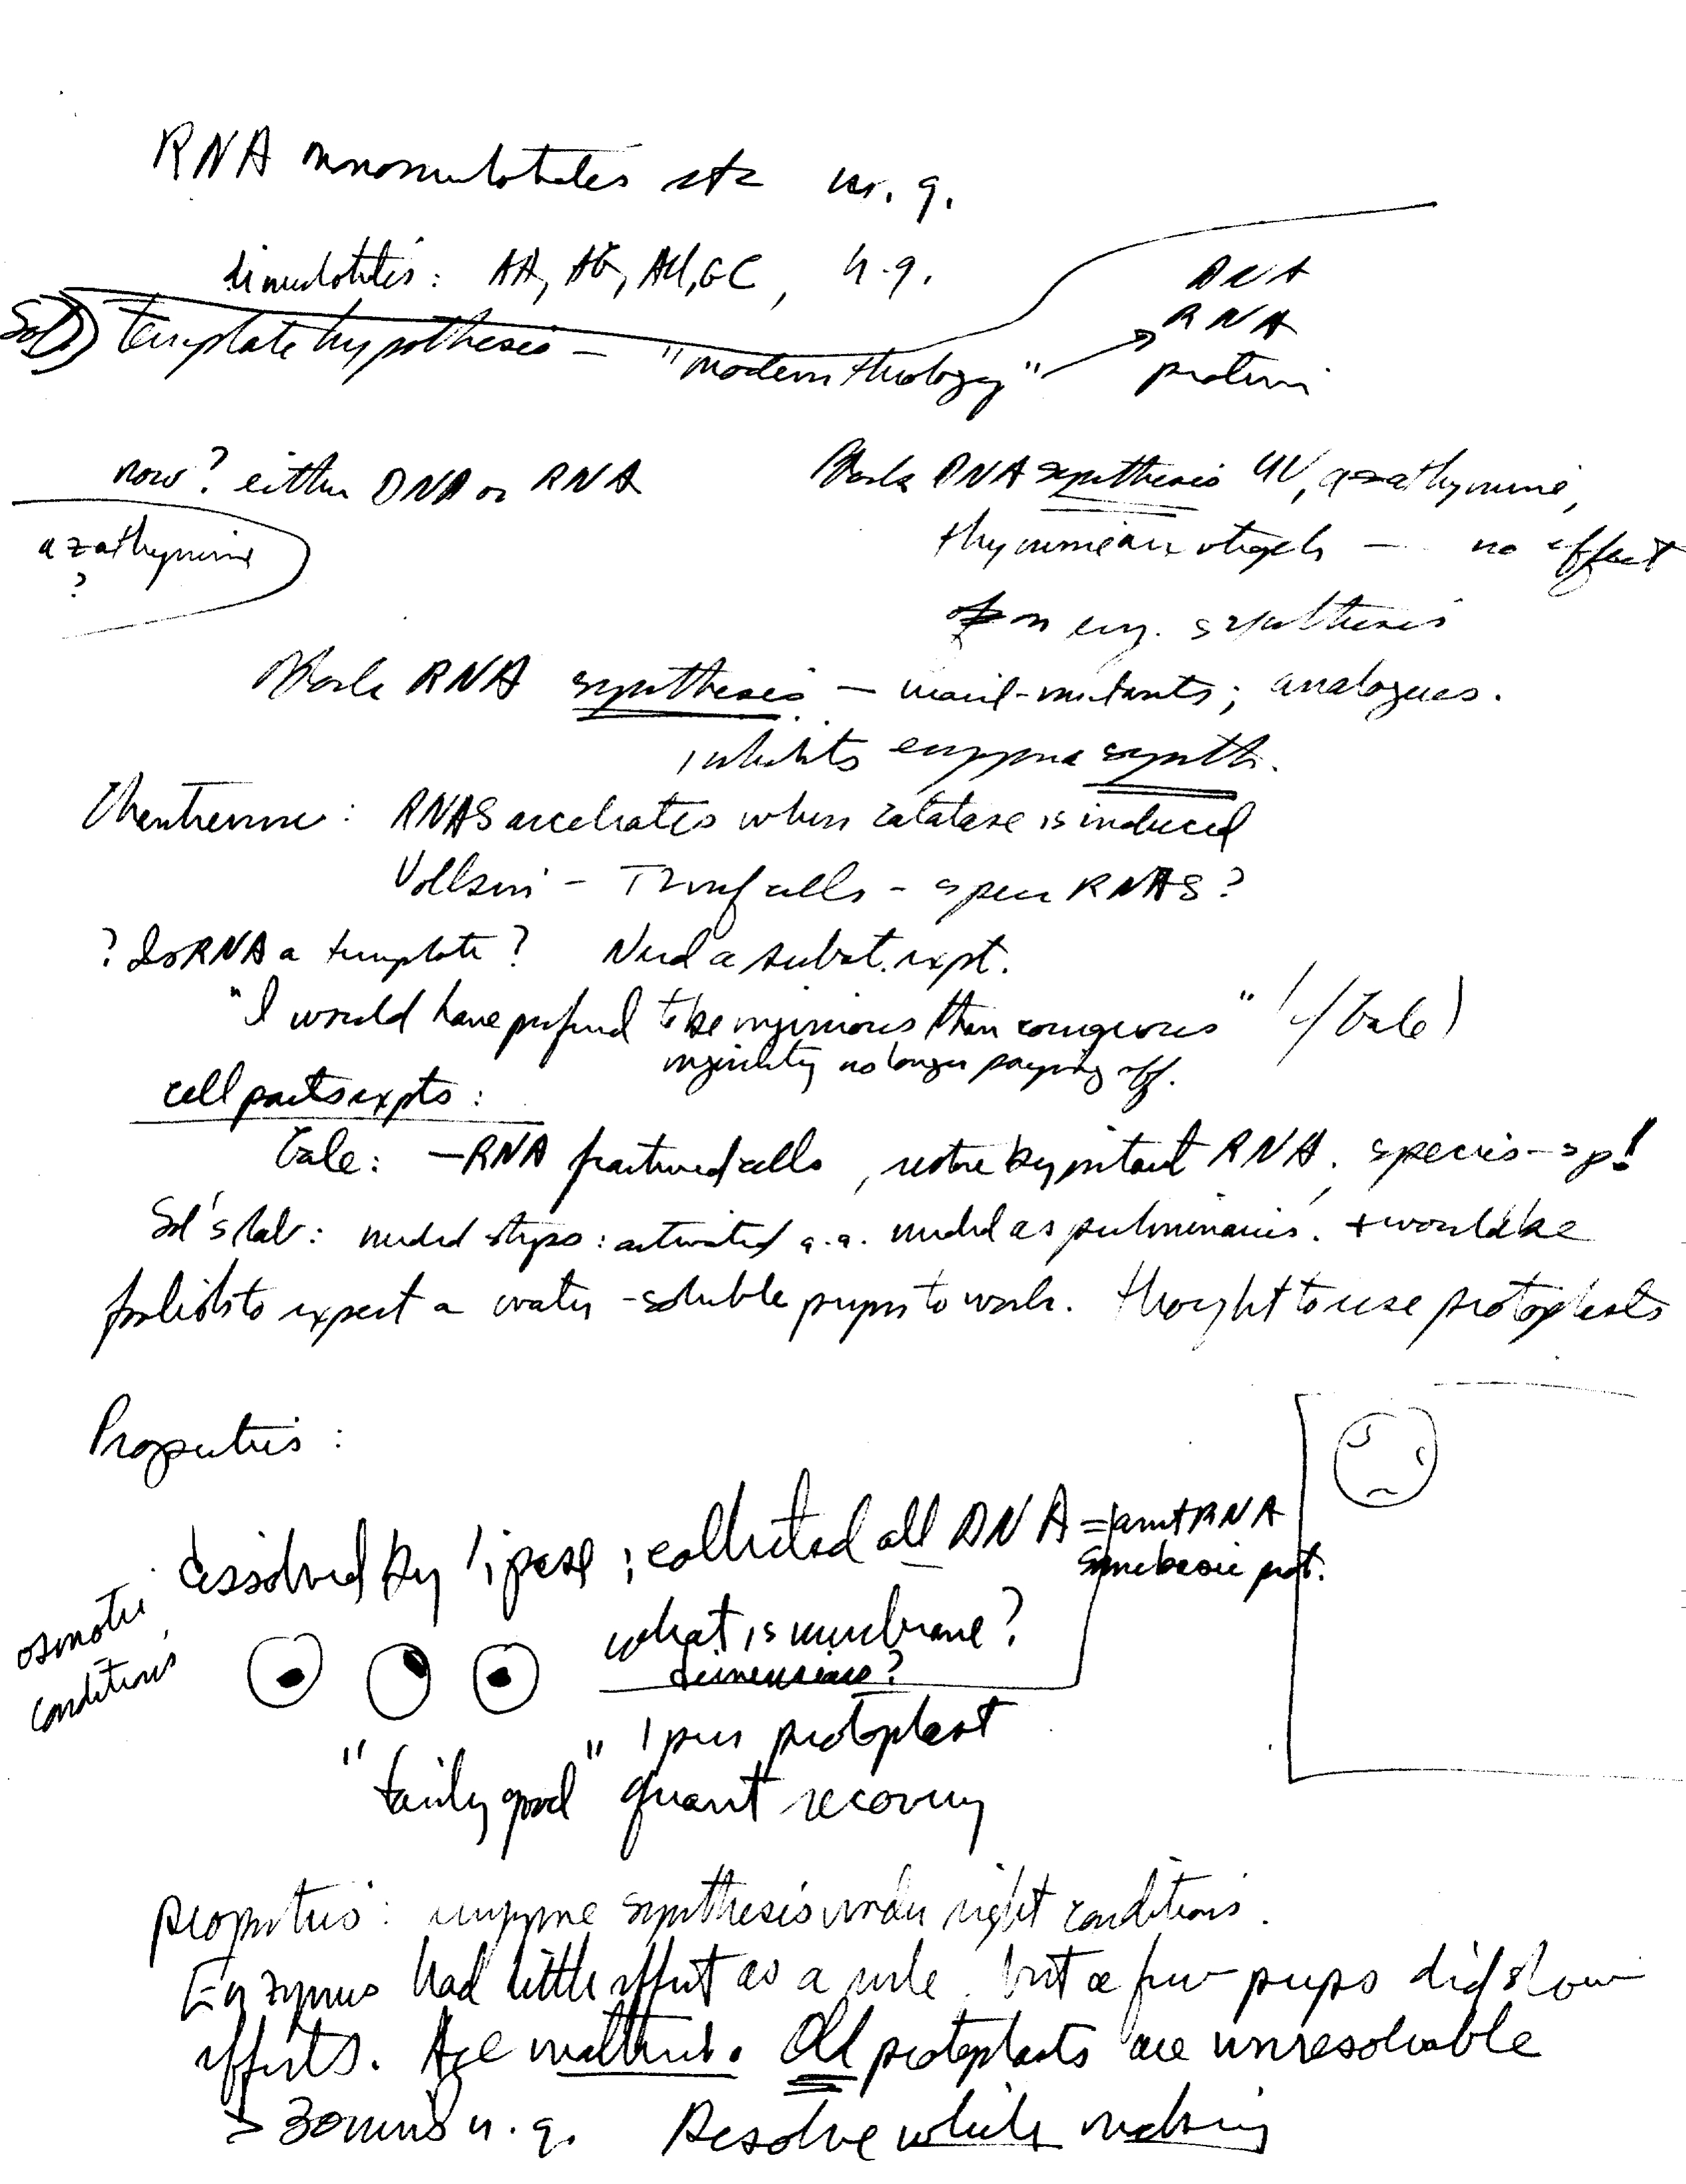 RNA mononucleotides etc n. g.
dinucleotides: AA, AG, AU, GC, n.g.
Sol) template hypothesis — "modern theology" →
DNA
RNA
protein
now? either DNA or RNA
azathymine
?
Block DNA synthesis UV, azathymine,
thymineless — no effect
on enz. synthesis
Block RNA synthesis — uracil-mutants; analogues.
inhibits enzyme synth.
Chantrenne: RNAS accelerates when catalase is induced
Volkin - T2 inf cells - spec RNAS?
? Is RNA a template? Need a subst. expt.
"I would have preferred to be ingenious than courageous" (c/Gale)
ingenuity no longer paying off.
cell parts expts:
Gale: —RNA fractured cells, restore by intact RNA. species-sp!
Sol's lab: needed steps: activated a.a. needed as preliminaries. + would be
foolish to expect a water-soluble preps to work. thought to use protoplasts
Properties:
dissolved by lipase; collected all DNA = amt RNA
some basic prot.
osmotic
conditions
what is membrane?
dimensions?
1 per protoplast
"fairly good" quant recovery
properties: enzyme synthesis under right conditions.
Enzymes had little effect as a rule. but a few preps did show
effects. Age matters. Old protoplasts are unresolvable
> 30 mins n. g. Resolve while making